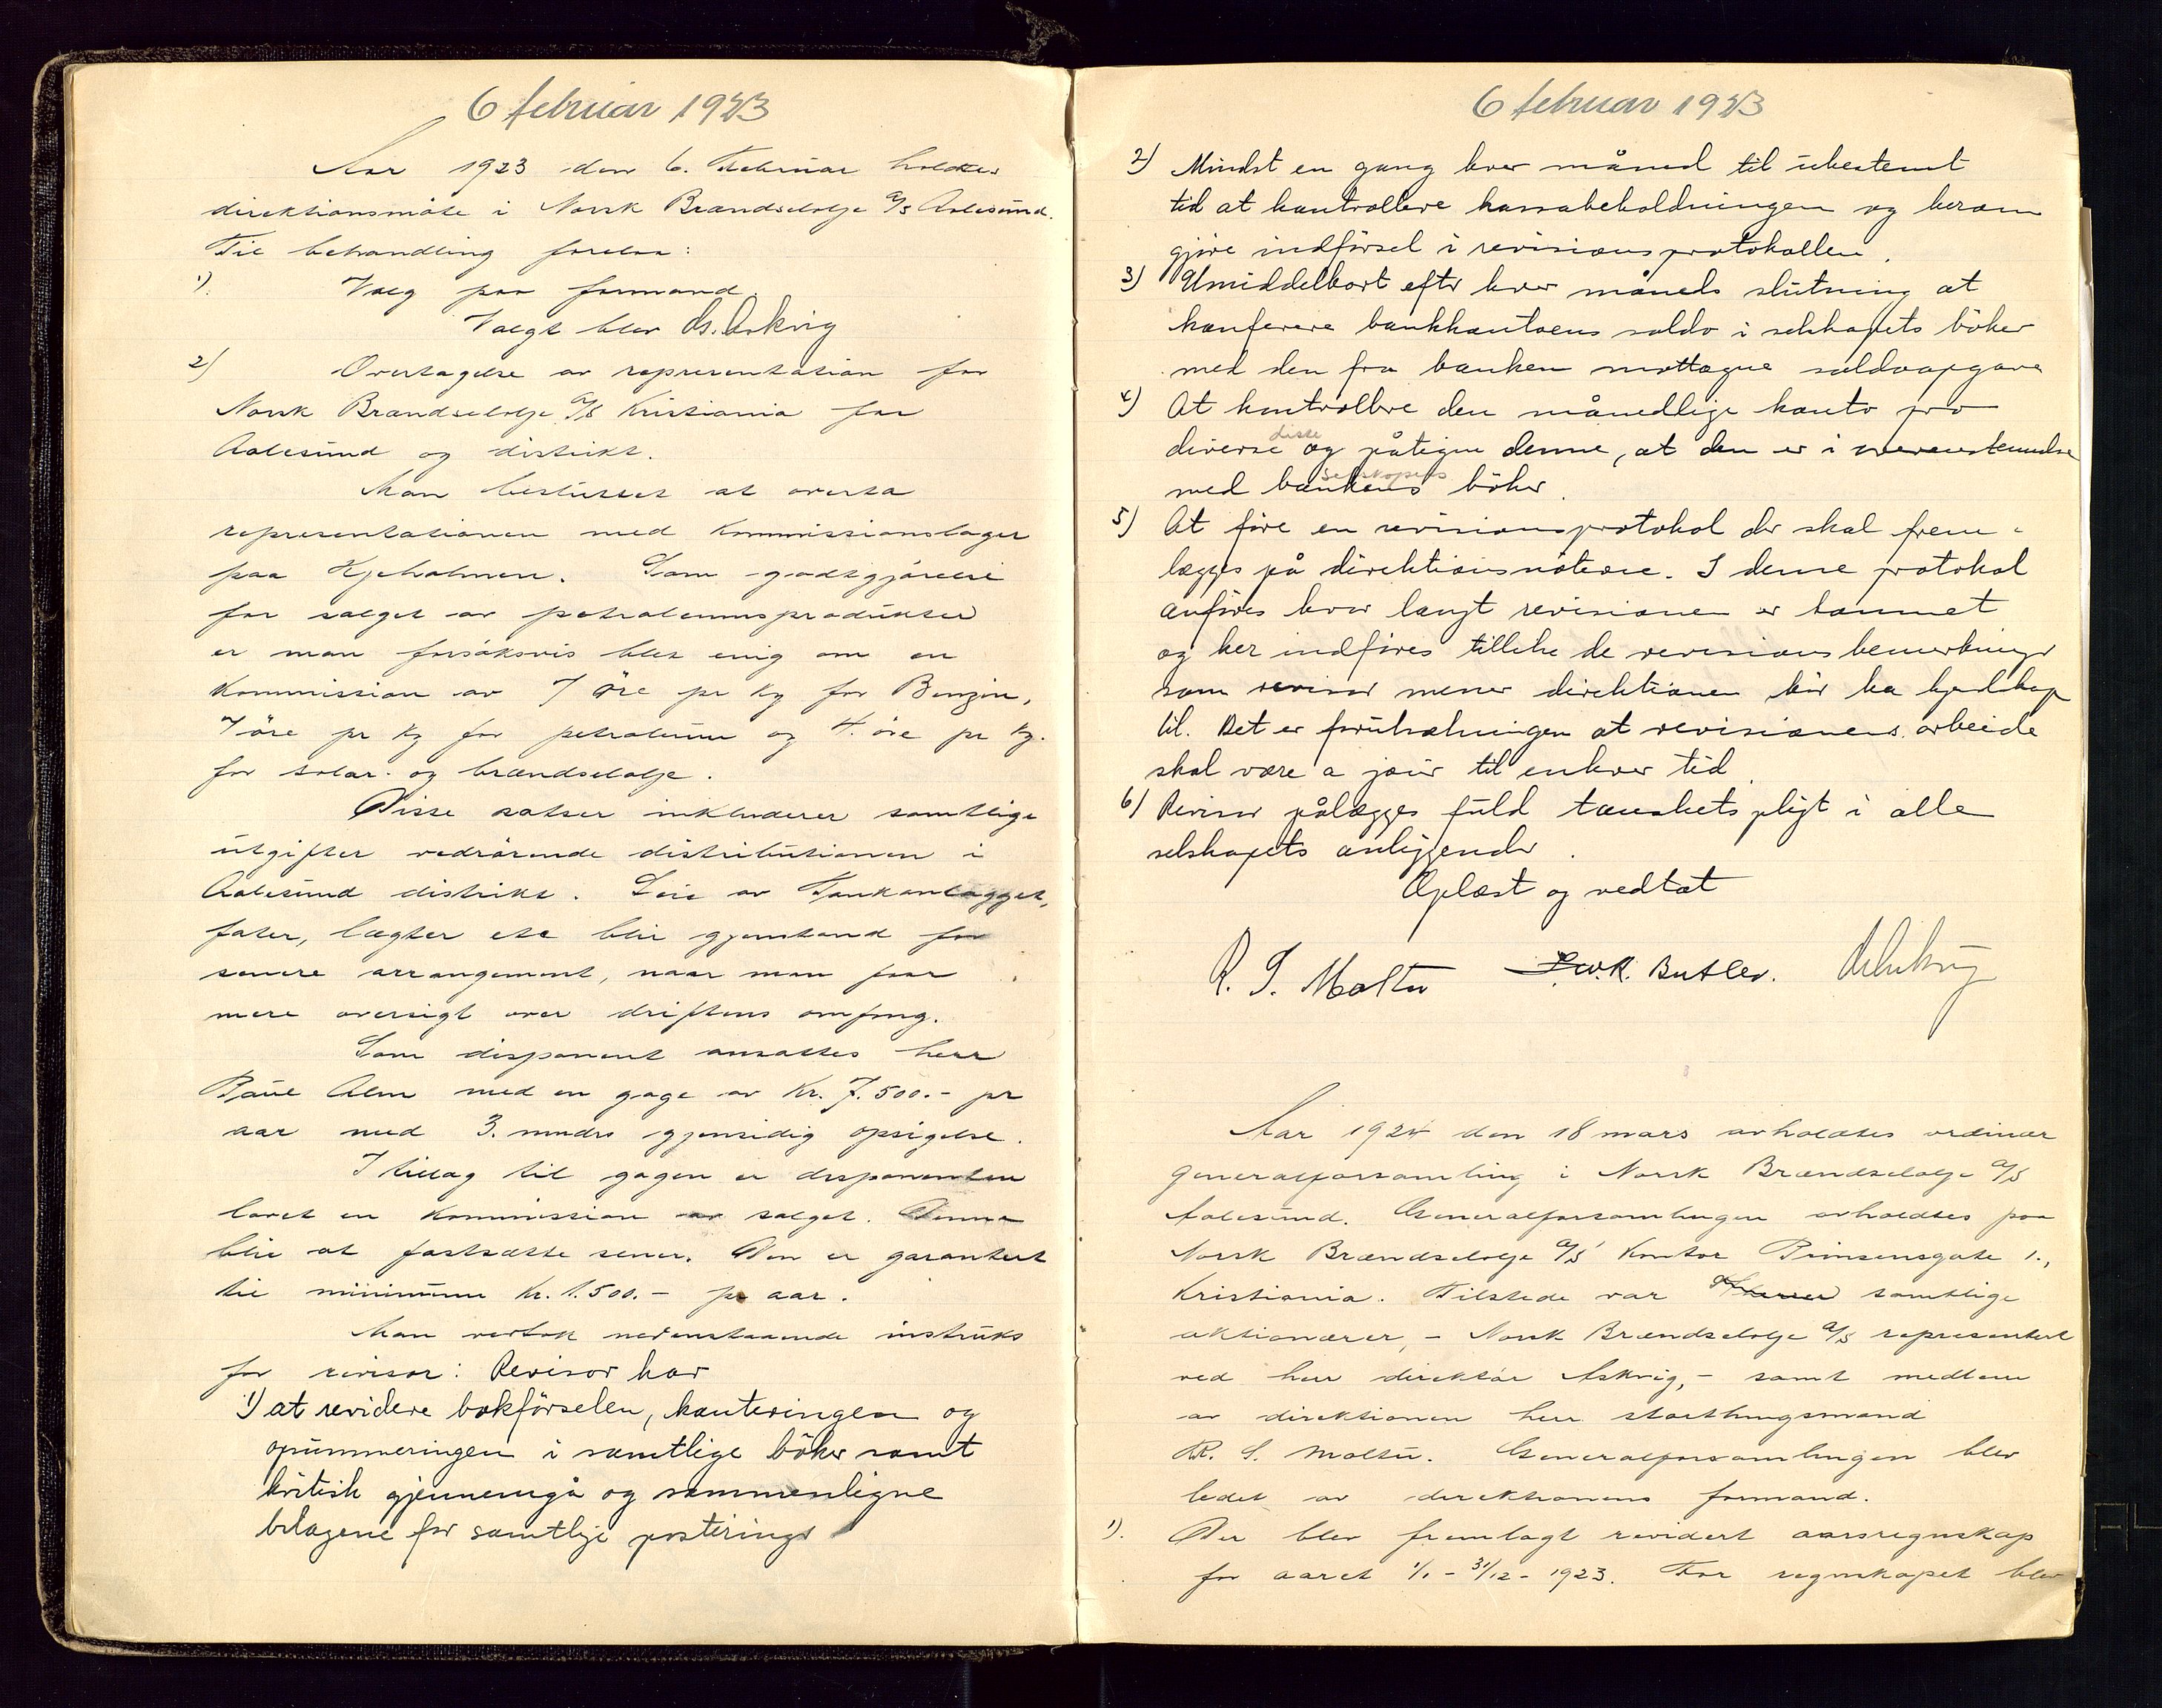 6 februar 1923
Aar 1923 den 6. Februar holdtes
direktionsmöte i Norsk Brændselolje A/S Aalesund.
Til behandling forelaa:
1). Valg paa formand.
Valgt blev Chr. Askvig
2) Overtagelse av representation for
Norsk Brændselolje A/S Kristiania for
Aalesund og distrikt.
Man besluttet at overta
representationen med kommissionslager
paa Kjeholmen. Som godtgjörelse
for salget av petroleumsprodukter
er man forsöksvis blet enig om en
kommission av 7 öre pr kg for Benzin,
7 öre pr kg for petroleum og 4. öre pr kg.
for solar- og brændselolje.
Disse satser inkluderer samtlige
utgifter vedrörende distributionen i
Aalesund distrikt. Leie av Tankanlægget,
fater, lægter etc blir gjenstand for
senere arrangement, naar man faar
mere oversigt over driftens omfang.
Som disponent ansattes herr
Paul Alm med en gage av Kr. 7.500.- pr
aar med 3. mndrs gjensidig opsigelse.
I tillæg til gagen er disponenten
lovet en kommission av salget. Denne
blir at fastsætte senere. Den er garantert
til minimum Kr. 1.500.- pr aar.
Man vedtok nedenstaaende instruks
for revisor: Revisor har
1) at revidere bokförselen, konteringen og
opsummeringen i samtlige böker samt
kritisk gjennemgå og sammenligne
bilagene for samtlige posteringer
6 februar 1923
2) Mindst en gang hver måned til ubestemt
tid at kontrollere kassabeholdningen og herom
gjöre indförsel i revisionsprotokollen.
3) Umiddelbart efter hver måneds slutning at
konferere bankkontoens saldo i selskapets böker
med den fra banken mottagne saldoopgave
4) At kontrollere den månedlige konto pro
diverse liste og påtegne denne, at den er i overenstemmelse
med bankens selskapets böker.
5) At före en revisionsprotokol der skal frem-
lægges på direktionsmötene. I denne protokol
anföres hvor langt revisionen er kommet
og her indföres tillike de revisionsbemerkninger
som revisor mener direktionen bör ha kjendskap
til. Det er forutsætningen at revisionens arbeide
skal være a jour til enhver tid.
6) Revisor pålægges fuld taushetspligt i alle
selskapets anliggender.
Oplæst og vedtat
R. S. Moltu W.R. Butler. Askvig
Aar 1924 den 18 mars avholdtes ordinær
generalforsamling i Norsk Brændselolje A/S
Aalesund. Generalforsamlingen avholdtes paa
Norsk Brændselolje A/S' kontor Prinsensgate 1.,
Kristiania. Tilstede var samtlige
aktionærer, - Norsk Brændselolje A/S representert
ved herr direktör Askvig, - samt medlem
av direktionen herr stortingsmand
R. S. Moltu. Generalforsamlingen blev
ledet av direktionens formand.
1). Der blev fremlagt revidert aarsregnskap
for aaret 1/1 - 31/12 - 1923. For regnskapet blev